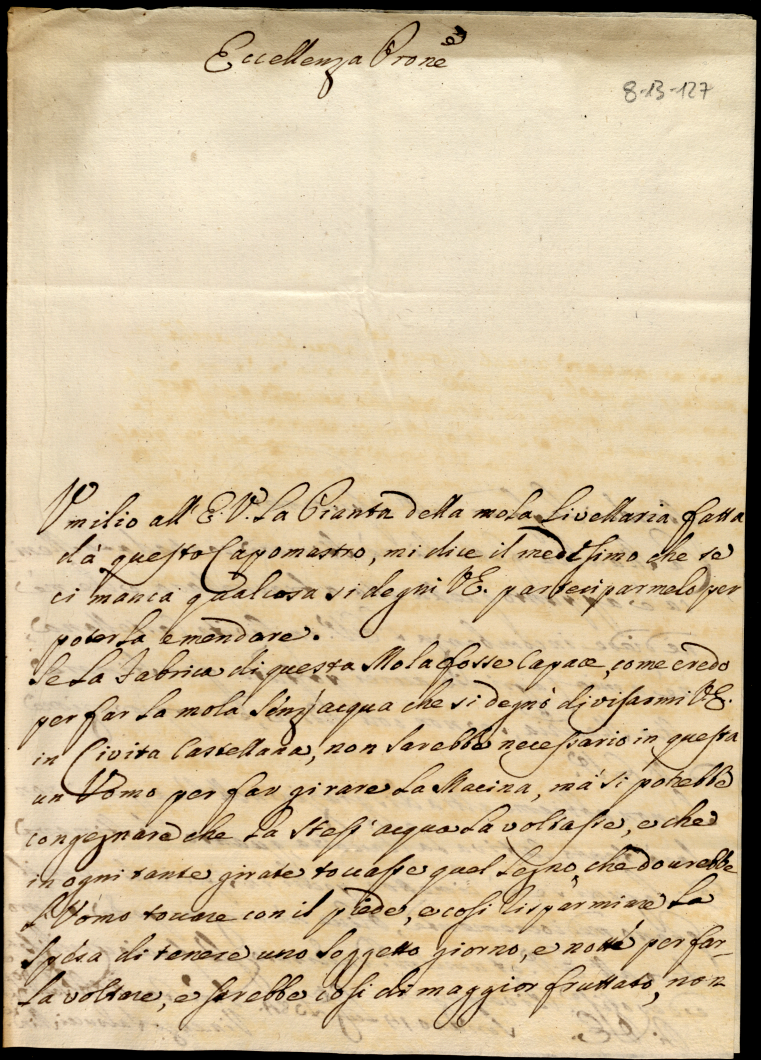 Eccellenza Prone
8-13-127
Vmilio all' E. V. La Pianta della mola Livellaria fatta
dà questo Capomastro, mi dice il medesimo che se
ci manca qualcosa si degni VE. parteciparmelo per
poterla emendare.
Se La Fabrica di questa Mola fosse Capace, come credo
per far la mola senz'acqua che si degnò divisarmi VE.
in Civita Castellana, non sarebbe necessario in questa
un Vomo per far girare La Macina, mà si potrebbe
congegnare che La stess' acqua La voltasse, e che
in ogni tante girate toccasse quel segno, che dourebbe
L'Vomo toccare con il piede, e così risparmiare La
spesa di tenere uno soggetto giorno, e notte per far-
La voltare, e sarebbe così di maggior fruttato, non